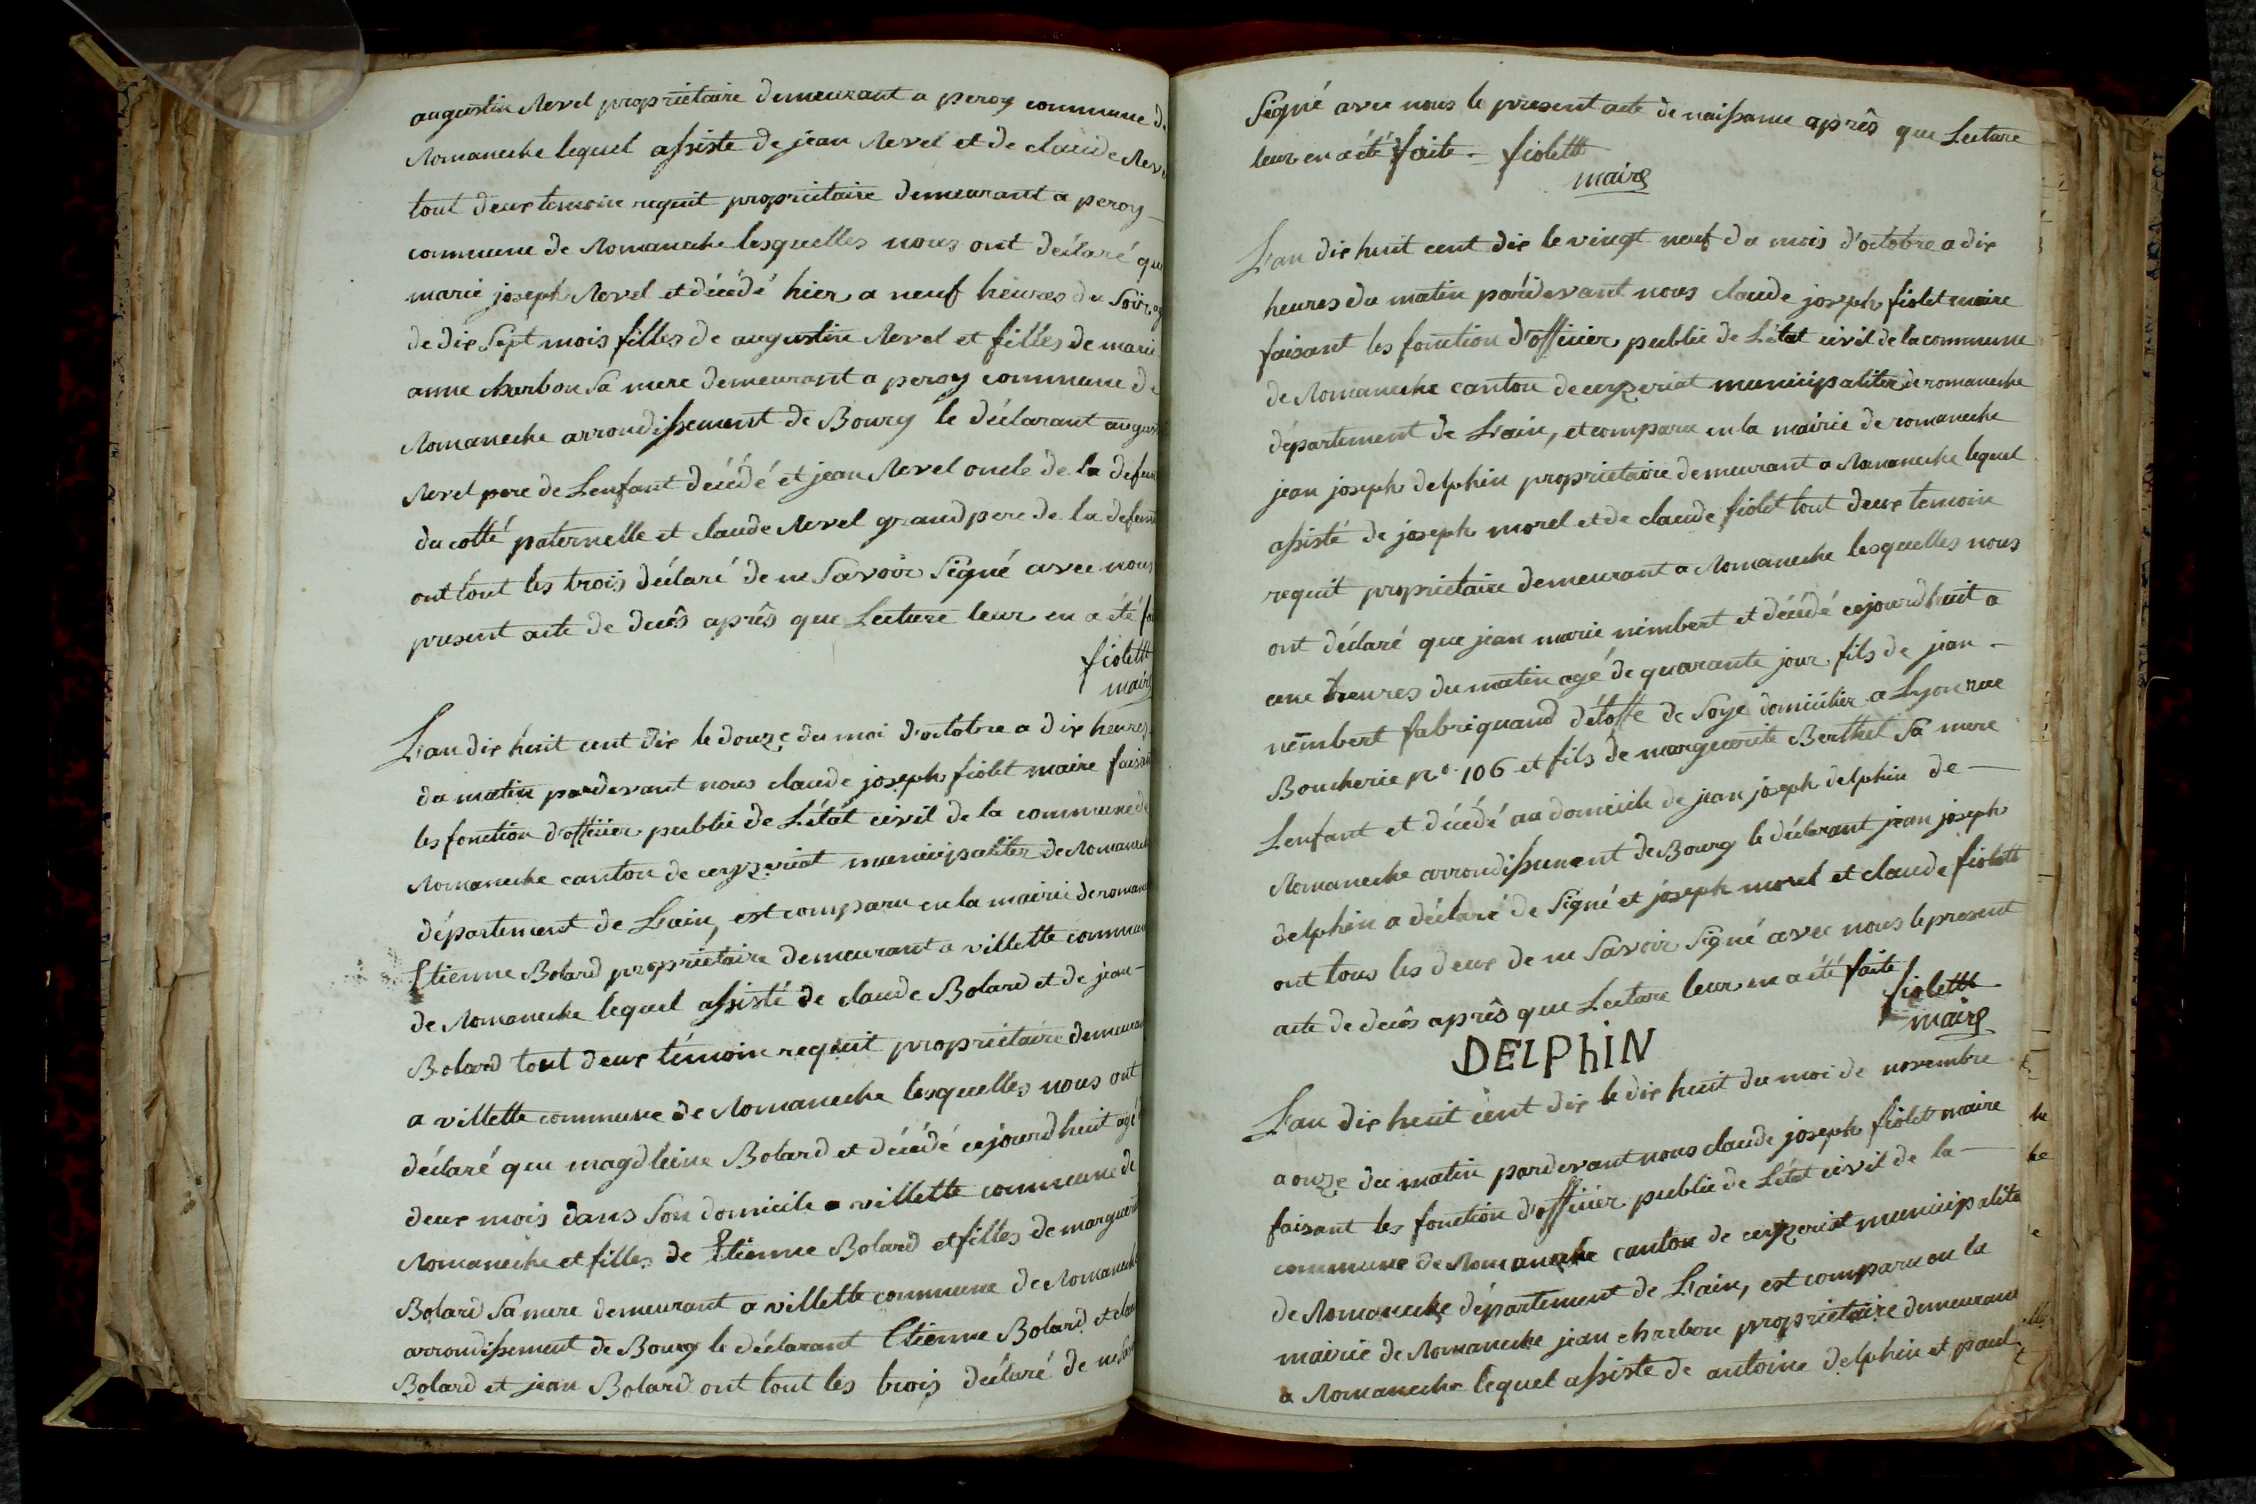 augustin Revel proprietaire demeurant a peroy commune d
Romaneche lequel assiste de jean Revel et de claude Rev
tout deux temoin requit proprietaire demeurant a peroy
commune de Romaneche lesquelles nous ont déclaré que
marie joseph Revel et décédé hier a neuf heures du Soir
de dix Sept mois filles de augustin Revel et filles de marie
anne charbon Sa mere demeurant a peroy commune de
Romaneche arrondissement de Bourg le déclarant august
Revel pere de Lenfant décédé et jean Revel oncle de la defun
du cotté paternelle et claude Revel grand pere de la defun
ont tout les trois déclaré de ne Savoir Signé avec nous
present acte de decês aprês que Lecture leur en a été fa
fiolett
maire
L'an dix huit cent dix le douze du moi d'octobre a dix heures
du matin pardevant nous claude joseph fiolet maire faisan
les fonction d'officier public de L'état civil de la commune de
Romaneche canton de ceyzeriat municipaliter de Romanech
département de L'ain, est comparu en la mairie de romane
Etienne Bolard proprietaire demeurant a villette commun
de Romaneche lequel assisté de claude Bolard et de jean
Bolard tout deux témoin requit proprietaire demeuran
a villette commune de Romaneche lesquelles nous ont
déclaré que magdleine Bolard et décédé cejourdhuit agé
deux mois dans Son domicile a villette commune de
Romaneche et filles de Etienne Bolard et filles de marguerit
Bolard Sa mere demeurant a villette commune de Romaneche
arrondissement de Bourg le déclarant Etienne Bolard et clau
Bolard et jean Bolard ont tout les trois déclaré de ne Sav
Signé avec nous le present acte de naissance aprês que Lecture
leur en a été faite fiolett
maire
L'an dix huit cent dix le vingt neuf du mois d'octobre a dix
heures du matin pardevant nous claude joseph fiolet maire
faisant les fonction d'officier public de L'état civil de la commune
de Romaneche canton de ceyzeriat municipaliter de romaneche
département de L'ain, et comparu en la mairie de romaneche
jean joseph delphin proprietaire demeurant a Romaneche lequel
assisté de joseph morel et de claude fiolet tout deux temoin
requit proprietaire demeurant a Romaneche lesquelles nous
ont déclaré que jean marie nimbert et décédé cejourdhuit a
une heures du matin agé de quarante jour fils de jean
nimbert fabriquand d'étoffe de Soye domicilier a Lyon rue
Boucherie n° 106 et fils de marguerite Berthet Sa mere
Lenfant et décédé au domicile de jean joseph delphin de
Romaneche arrondissement de Bourg le déclarant jean joseph
delphin a déclaré de Signé et joseph morel et claude fiolett
ont tous les deux de ne Savoir Signé avec nous le present
acte de decês aprês que Lecture leur en a été faite
fiolett
maire
DELPhIN
L'an dix huit cent dix le dix huit du moi de novembre
a onze du matin pardevant nous claude joseph fiolet maire
faisant les fonction d'officier public de L'état civil de la
commune de Romaneche canton de ceyzeriat municipalite
de Romaneche département de L'ain, est comparu en la
mairie de Romaneche jean charbon proprietaire demeurant
a Romaneche lequel assiste de antoine delphin et paul